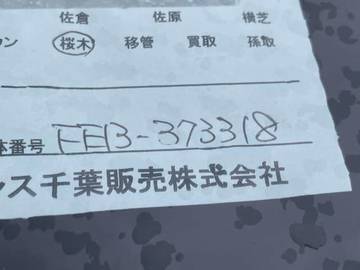 佐倉 佐原 横芝
ウン 桜木 移管 買取 孫取
体番号 FEB-373318
ンス千葉販売株式会社